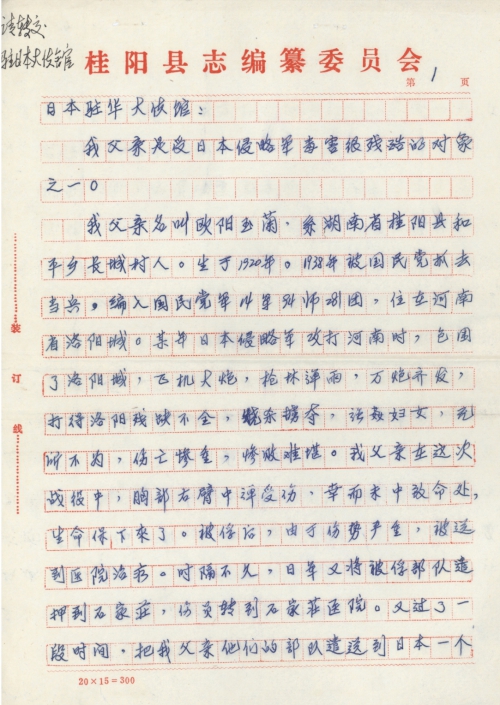 请转交
驻日本大使馆
桂阳县志编纂委员会
第 1 页
日本驻华大使馆：
我父亲是受日本侵略军毒害很残酷的对象
之一。
我父亲名叫欧阳玉菊，系湖南省桂阳县和
平乡长城村人。生于1920年。1938年被国民党抓去
当兵。编入国民党军14军94师281团，住在河南
省洛阳城。某年日本侵略军攻打河南时，包围
了洛阳城，飞机大炮，枪林弹雨，万炮齐发，
打得洛阳残缺不全，烧杀掳夺，强奸妇女，无
所不为，伤亡惨重，惨败难堪。我父亲在这次
战役中，胸部右臂中弹受伤，幸而未中致命处，
生命保下来了。被俘后，由于伤势严重，被送
到医院治疗。时隔不久，日军又将被俘部队遣
押到石家莊，伤员转到石家莊医院。又过了一
段时间，把我父亲他们的部队遣送到日本一个
装
订
线
20×15=300